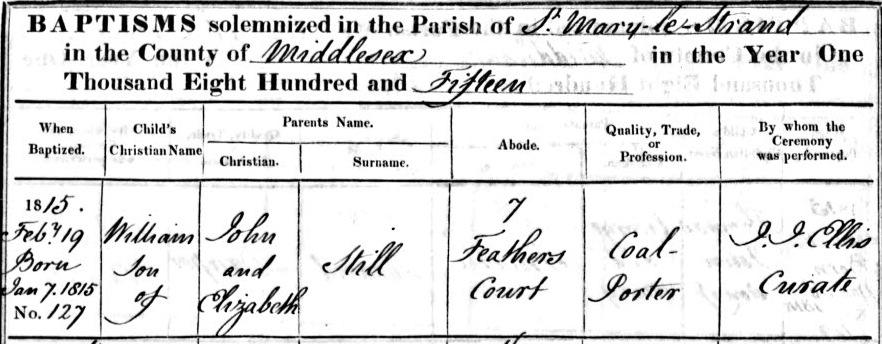 BAPTISMS solemnized in the Parish of St. Mary-le-Strand
in the County of Middlesex in the Year One
Thousand Eight Hundred and Fifteen
When Baptized. Child's Christian Name Parents Name. Christian. Surname. Abode. Quality, Trade, or Profession. By whom the Ceremony was performed.
1815.
Feby 19
Born
Jan 7. 1815
No. 127
William
Son
of
John
and
Elizabeth
Still
7
Feathers
Court
Coal-
Porter
J. J. Ellis
Curate